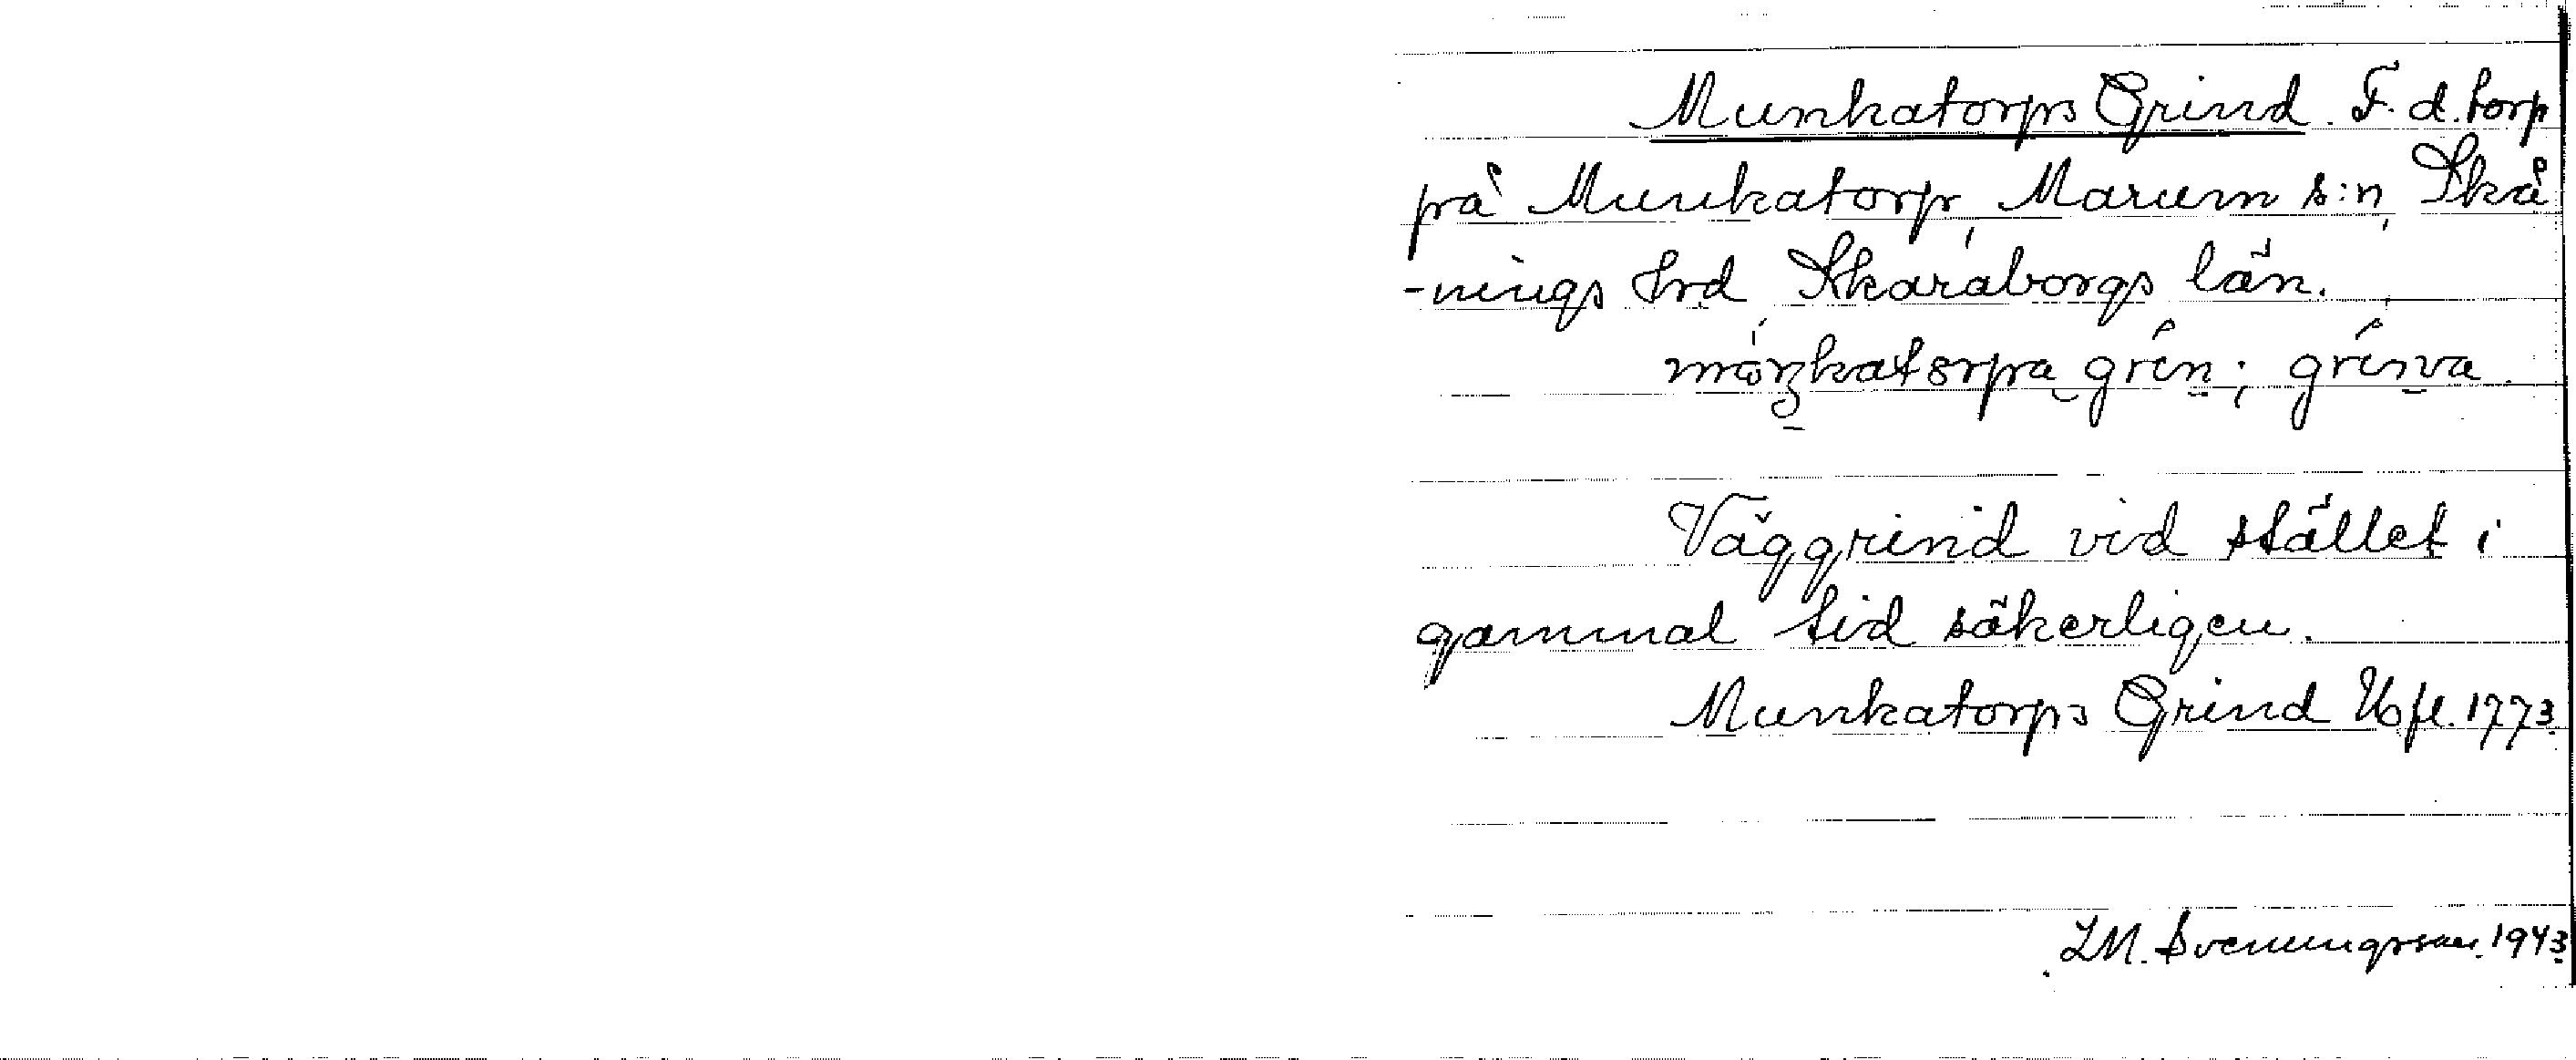 Munkatorps Grind. F. d. torp
på Munkatorp, Marum s:n, Skå
-nings hrd, Skaraborgs län.
Väggrind vid stället i
gammal tid säkerligen.
Munkatorps Grind Hfl. 1773
LM. Svenungsson 1943